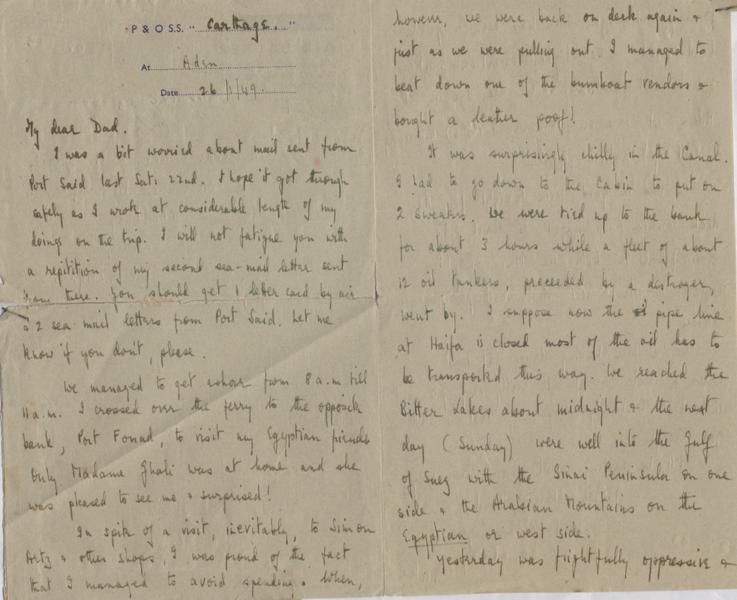 "P & O S.S. "Carthage."
At Aden
Date 26/1/49.
My dear Dad.
I was a bit worried about mail sent from
Port Said last Sat: 22nd. I hope it got through
safely as I wrote at considerable length of my
doings on the trip. I will not fatigue you with
a repitition of my second sea-mail letter sent
from there. You should get 1 letter card by air
& 2 sea mail letters from Port Said. Let me
know if you don't, please.
We managed to get ashore from 8 a.m. till
11 a.m. I crossed over the ferry to the opposite
bank, Port Fouad, to visit my Egyptian friends
Only Madame Ghali was at home and she
was pleased to see me & surprised!
In spite of a visit, inevitably, to Simon
Artz & other shops, I was proud of the fact
that I managed to avoid spending. When,
however, we were back on deck again &
just as we were pulling out I managed to
beat down one of the bumboat vendors &
bought a leather poof!
It was surprisingly chilly in the Canal.
I had to go down to the Cabin to put on
2 sweaters. We were tied up to the bank
for about 3 hours while a fleet of about
12 oil tankers, preceeded by a destroyer,
went by. I suppose now the pipe line
at Haifa is closed most of the oil has to
be transported this way. We reached the
Bitter Lakes about midnight & the next
day (Sunday) were well into the Gulf
of Suez with the Sinai Peninsula on one
side & the Arabian Mountains on the
Egyptian or west side.
Yesterday was frightfully oppressive &